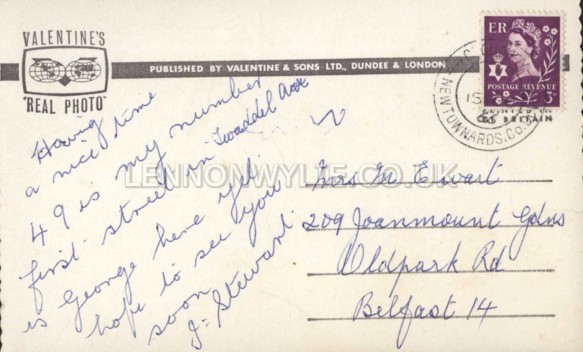 VALENTINE'S
"REAL PHOTO"
PUBLISHED BY VALENTINE & SONS LTD., DUNDEE & LONDON
Having
a nice time
49 is my number
first street in Twaddel Ave
is George here yet
hope to see you
soon
J. Stewart
Mrs M Ewart
209 Joanmount Gdns
Oldpark Rd
Belfast 14
E R
POSTAGE REVENUE
3D
NEWTOWNARDS. CO.
BRITAIN
LENNONWYLIE.CO.UK